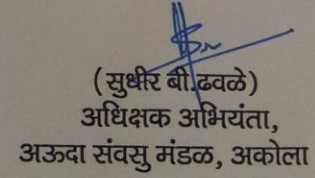 (सुधीर बी.ढवळे)
अधिक्षक अभियंता,
अऊदा संवसु मंडळ, अकोला